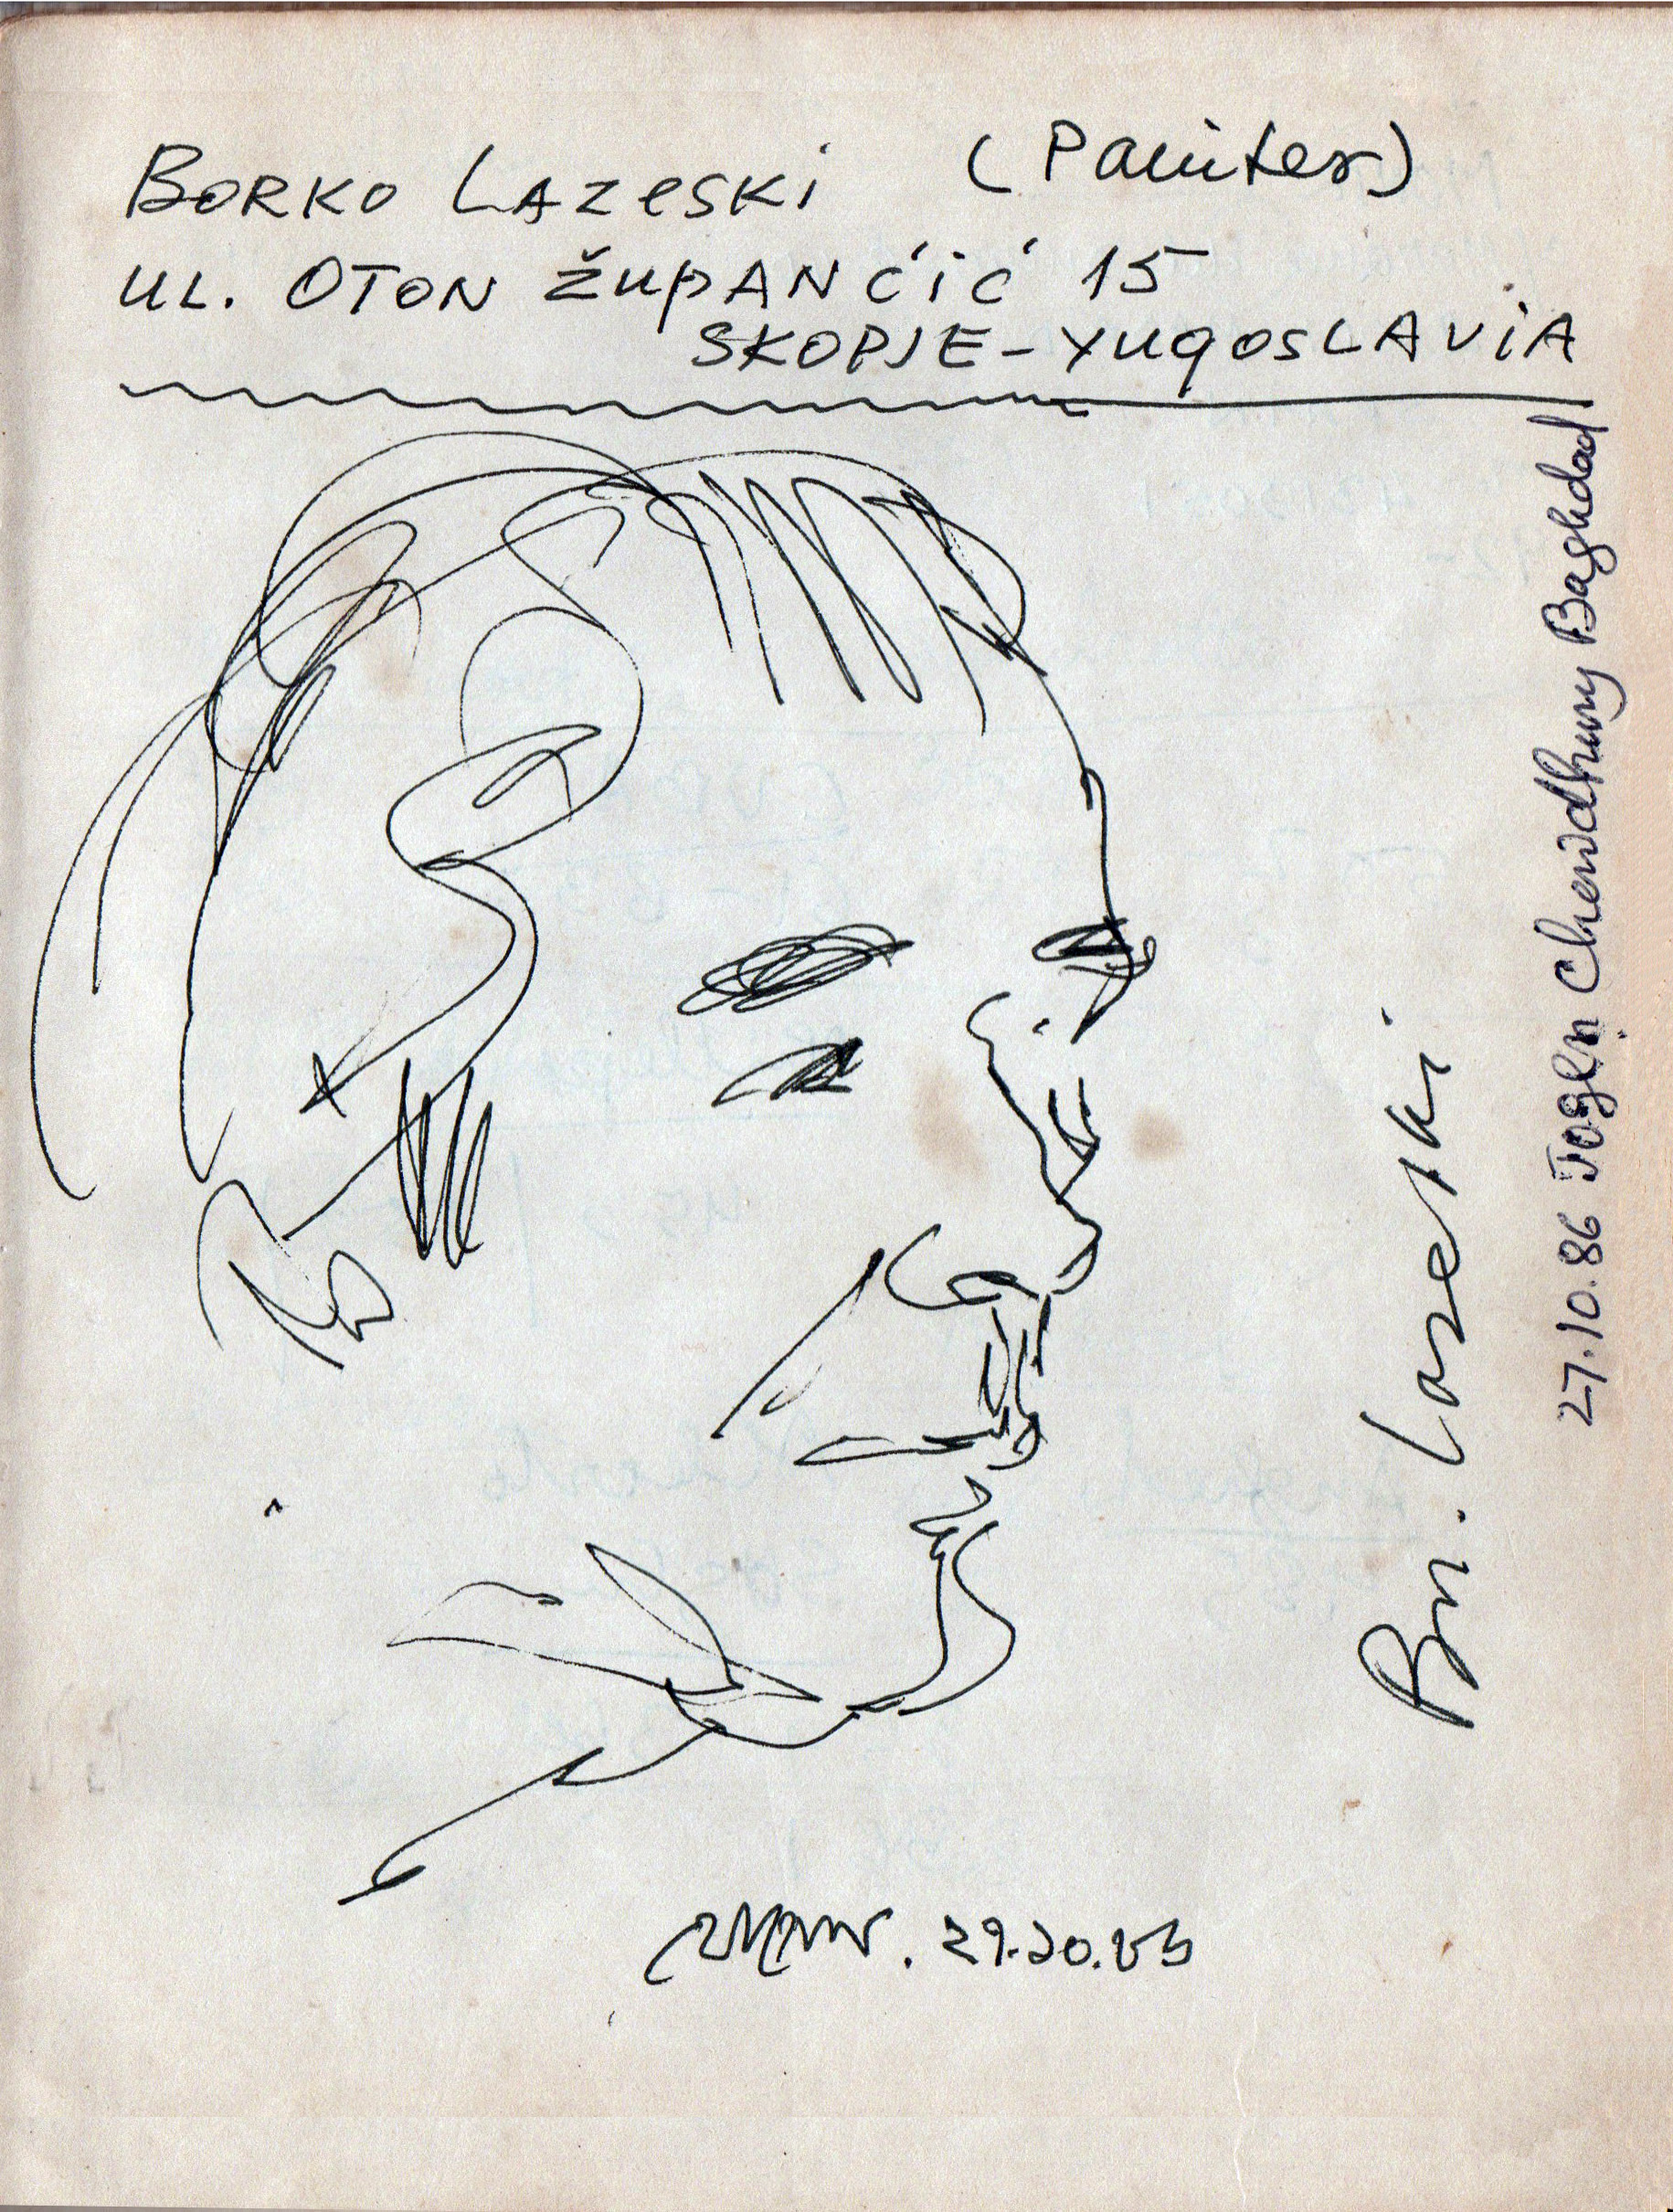 BORKO LAZESKI (Painter)
UL. OTON ŽUPANĆIĆ 15
SKOPJE-YUGOSLAVIA
27.10.86 Jogen Chowdhury Baghdad
Lazeski